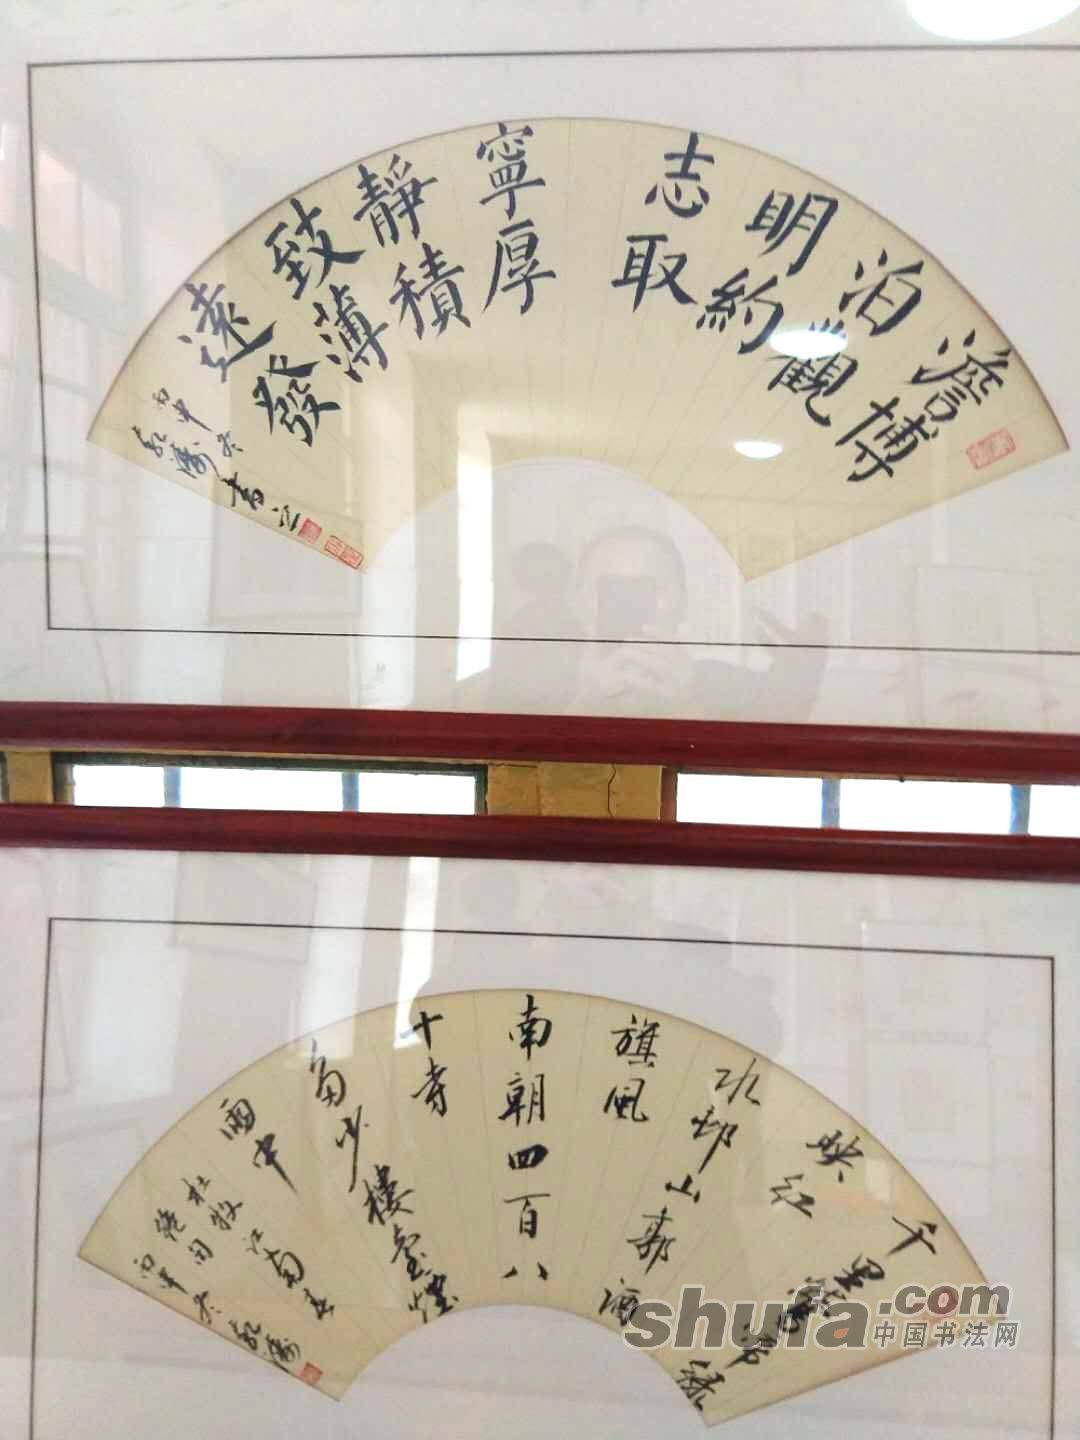 澹泊明志寧靜致遠
博觀約取厚積薄發
丙申冬
書之
千里鶯啼綠
映紅
水邨山郭酒
旗風
南朝四百八
十寺
多少樓臺煙
雨中
杜牧江南春
絕句
丙申冬
shufa.com
中国书法网